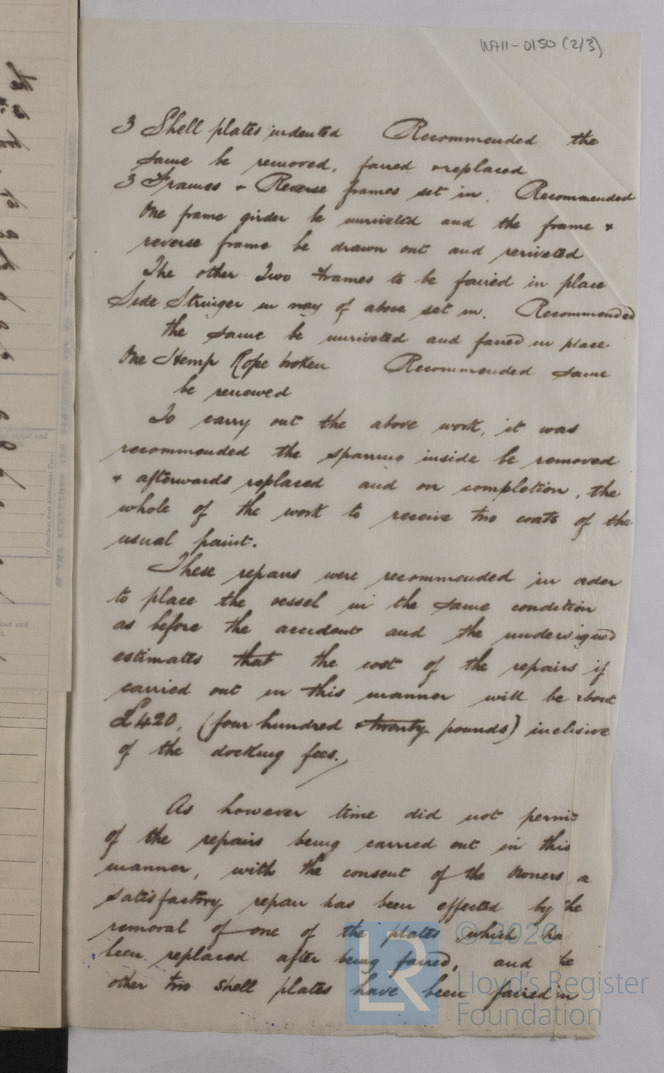 W711-0150 (2/3)
3 Shell plates indented Recommended the
same be removed, faired & replaced
3 Frames & Reverse frames set in. Recommended
One frame girder be unriveted and the frame &
reverse frame be drawn out and reriveted
The other Two frames to be faired in place
Side Stringer in way of above set in. Recommended
the same be unriveted and faired in place
One Hemp Rope broken Recommended same
be renewed
To carry out the above work, it was
recommended the sparring inside be removed
& afterwards replaced and on completion, the
whole of the work to receive two coats of the
usual paint.
These repairs were recommended in order
to place the vessel in the same condition
as before the accident and the undersigned
estimates that the cost of the repairs if
carried out in this manner will be about
£420. (four hundred & twenty pounds) inclusive
of the docking fees.
As however time did not permit
of the repairs being carried out in this
manner, with the consent of the Owners a
satisfactory repair has been effected by the
removal of one of the plates which ha
been replaced after being faired, and the
other two shell plates have been faired in
© 2020
Lloyd's Register
Foundation
LR